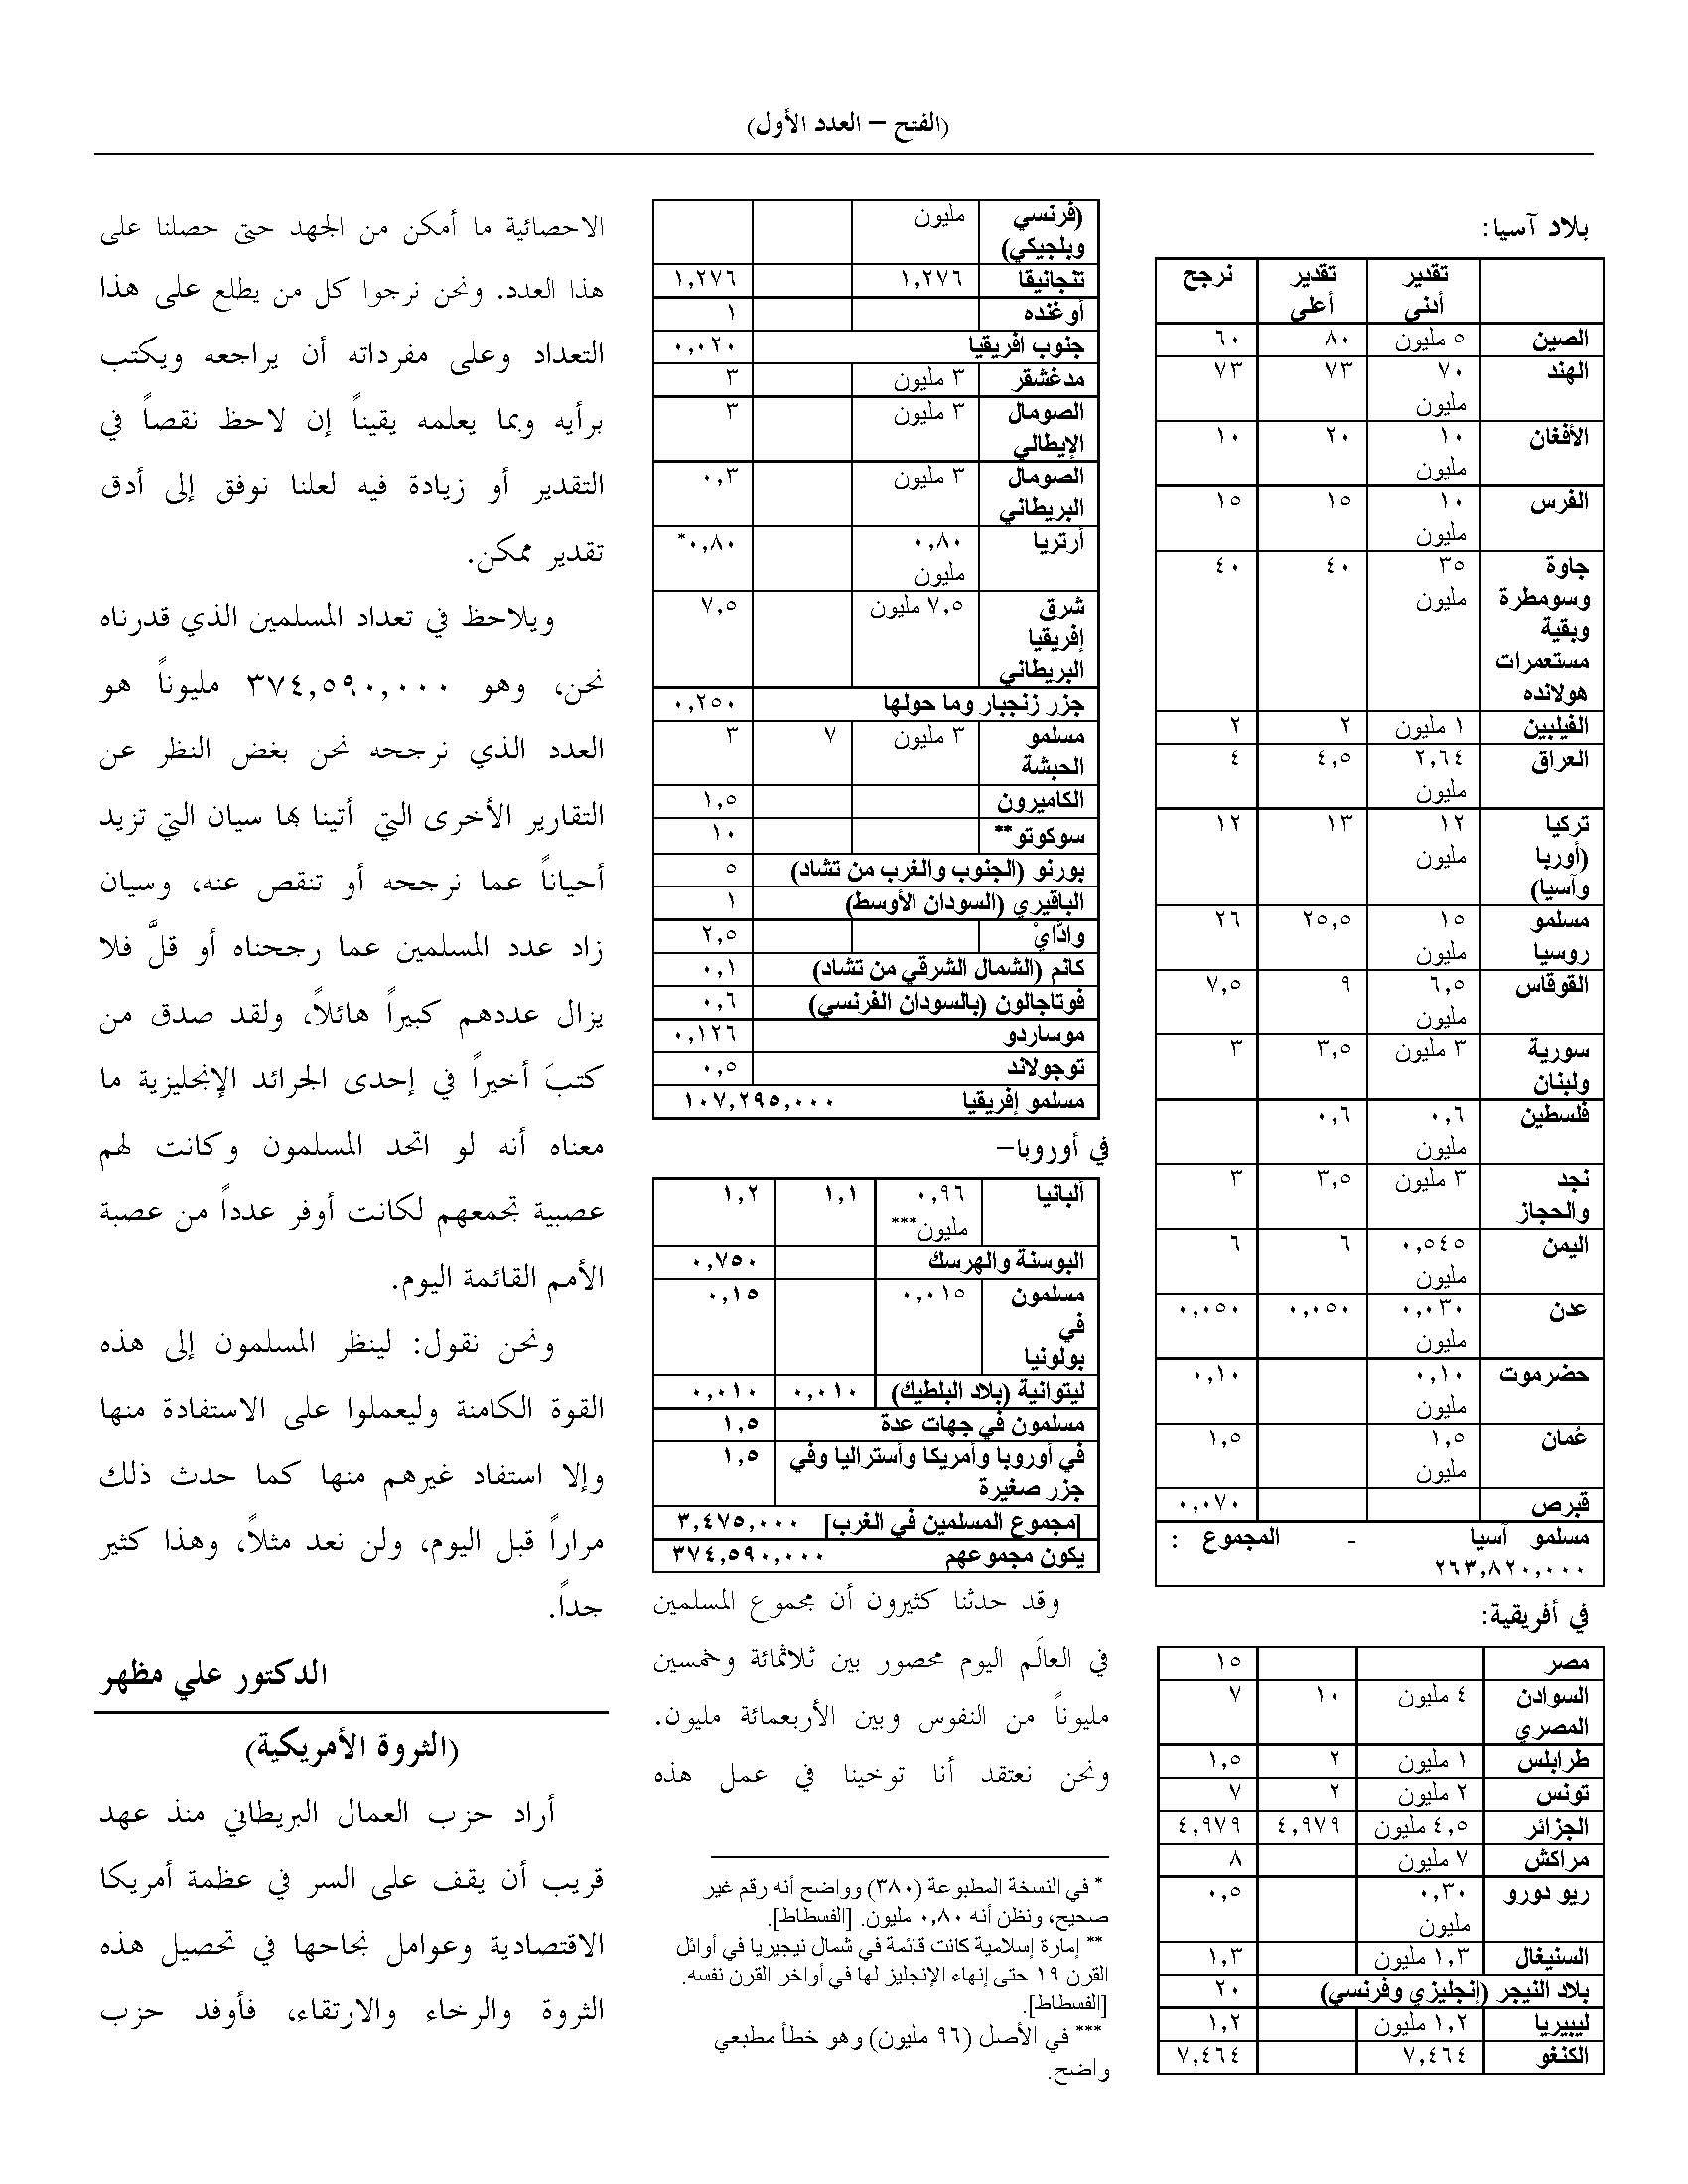 (الفتح – العدد الأول)
بلاد آسيا:
تقدير أدنى تقدير أعلى نرجح
الصين ٥ مليون ٨٠ ٦٠
الهند ٧٠ مليون ٧٣ ٧٣
الأفغان ١٠ مليون ٢٠ ١٠
الفرس ١٠ مليون ١٥ ١٥
جاوة وسومطرة وبقية مستعمرات هولانده ٣٥ مليون ٤٠ ٤٠
الفيلبين ١ مليون ٢ ٢
العراق ٢,٦٤ مليون ٤,٥ ٤
تركيا (أوربا وآسيا) ١٢ مليون ١٣ ١٢
مسلمو روسيا ١٥ مليون ٢٥,٥ ٢٦
القوقاس ٦,٥ مليون ٩ ٧,٥
سورية ولبنان ٣ مليون ٣,٥ ٣
فلسطين ٠,٦ مليون ٠,٦
نجد والحجاز ٣ مليون ٣,٥ ٣
اليمن ٠,٥٤٥ مليون ٦ ٦
عدن ٠,٠٣٠ مليون ٠,٠٥٠ ٠,٠٥٠
حضرموت ٠,١٠ مليون ٠,١٠
عُمان ١,٥ مليون ١,٥
قبرص ٠,٠٧٠
مسلمو آسيا - المجموع :
٢٦٣,٨٢٠,٠٠٠
في أفريقية:
مصر ١٥
السوادن المصري ٤ مليون ١٠ ٧
طرابلس ١ مليون ٢ ١,٥
تونس ٢ مليون ٢ ٧
الجزائر ٤,٥ مليون ٤,٩٧٩ ٤,٩٧٩
مراكش ٧ مليون ٨
ريو دورو ٠,٣٠ مليون ٠,٥
السنيغال ١,٣ مليون ١,٣
بلاد النيجر (إنجليزي وفرنسي) ٢٠
ليبيريا ١,٢ مليون ١,٢
الكنغو ٧,٤٦٤ ٧,٤٦٤
(فرنسي وبلجيكي) مليون
تنجانيقا ١,٢٧٦ ١,٢٧٦
أوغنده ١
جنوب افريقيا ٠,٠٢٠
مدغشقر ٣ مليون ٣
الصومال الإيطالي ٣ مليون ٣
الصومال البريطاني ٣ مليون ٠,٣
أرتريا ٠,٨٠ مليون ٠,٨٠*
شرق إفريقيا البريطاني ٧,٥ مليون ٧,٥
جزر زنجبار وما حولها ٠,٢٥٠
مسلمو الحبشة ٣ مليون ٧ ٣
الكاميرون ١,٥
سوكوتو** ١٠
بورنو (الجنوب والغرب من تشاد) ٥
الباقيري (السودان الأوسط) ١
وادّايْ ٢,٥
كانم (الشمال الشرقي من تشاد) ٠,١
فوتاجالون (بالسودان الفرنسي) ٠,٦
موساردو ٠,١٢٦
توجولاند ٠,٥
مسلمو إفريقيا ١٠٧,٢٩٥,٠٠٠
في أوروبا–
ألبانيا ٠,٩٦ مليون*** ١,١ ١,٢
البوسنة والهرسك ٠,٧٥٠
مسلمون في بولونيا ٠,٠١٥ ٠,١٥
ليتوانية (بلاد البلطيك) ٠,٠١٠ ٠,٠١٠
مسلمون في جهات عدة ١,٥
في أوروبا وأمريكا وأستراليا وفي جزر صغيرة ١,٥
[مجموع المسلمين في الغرب] ٣,٤٧٥,٠٠٠
يكون مجموعهم ٣٧٤,٥٩٠,٠٠٠
وقد حدثنا كثيرون أن مجموع المسلمين
في العالَم اليوم محصور بين ثلاثمائة وخمسين
مليوناً من النفوس وبين الأربعمائة مليون.
ونحن نعتقد أنا توخينا في عمل هذه
* في النسخة المطبوعة (٣٨٠) وواضح أنه رقم غير
صحيح، ونظن أنه ٠,٨٠ مليون. [الفسطاط].
** إمارة إسلامية كانت قائمة في شمال نيجيريا في أوائل
القرن ١٩ حتى إنهاء الإنجليز لها في أواخر القرن نفسه.
[الفسطاط].
*** في الأصل (٩٦ مليون) وهو خطأ مطبعي
واضح.
الاحصائية ما أمكن من الجهد حتى حصلنا على
هذا العدد. ونحن نرجوا كل من يطلع على هذا
التعداد وعلى مفرداته أن يراجعه ويكتب
برأيه وبما يعلمه يقيناً إن لاحظ نقصاً في
التقدير أو زيادة فيه لعلنا نوفق إلى أدق
تقدير ممكن.
ويلاحظ في تعداد المسلمين الذي قدرناه
نحن، وهو ٣٧٤,٥٩٠,٠٠٠ مليوناً هو
العدد الذي نرجحه نحن بغض النظر عن
التقارير الأخرى التي أتينا بها سيان التي تزيد
أحياناً عما نرجحه أو تنقص عنه، وسيان
زاد عدد المسلمين عما رجحناه أو قلَّ فلا
يزال عددهم كبيراً هائلاً، ولقد صدق من
كتبَ أخيراً في إحدى الجرائد الإنجليزية ما
معناه أنه لو اتحد المسلمون وكانت لهم
عصبية تجمعهم لكانت أوفر عدداً من عصبة
الأمم القائمة اليوم.
ونحن نقول: لينظر المسلمون إلى هذه
القوة الكامنة وليعملوا على الاستفادة منها
وإلا استفاد غيرهم منها كما حدث ذلك
مراراً قبل اليوم، ولن نعد مثلاً، وهذا كثير
جداً.
الدكتور علي مظهر
(الثروة الأمريكية)
أراد حزب العمال البريطاني منذ عهد
قريب أن يقف على السر في عظمة أمريكا
الاقتصادية وعوامل نجاحها في تحصيل هذه
الثروة والرخاء والارتقاء، فأوفد حزب